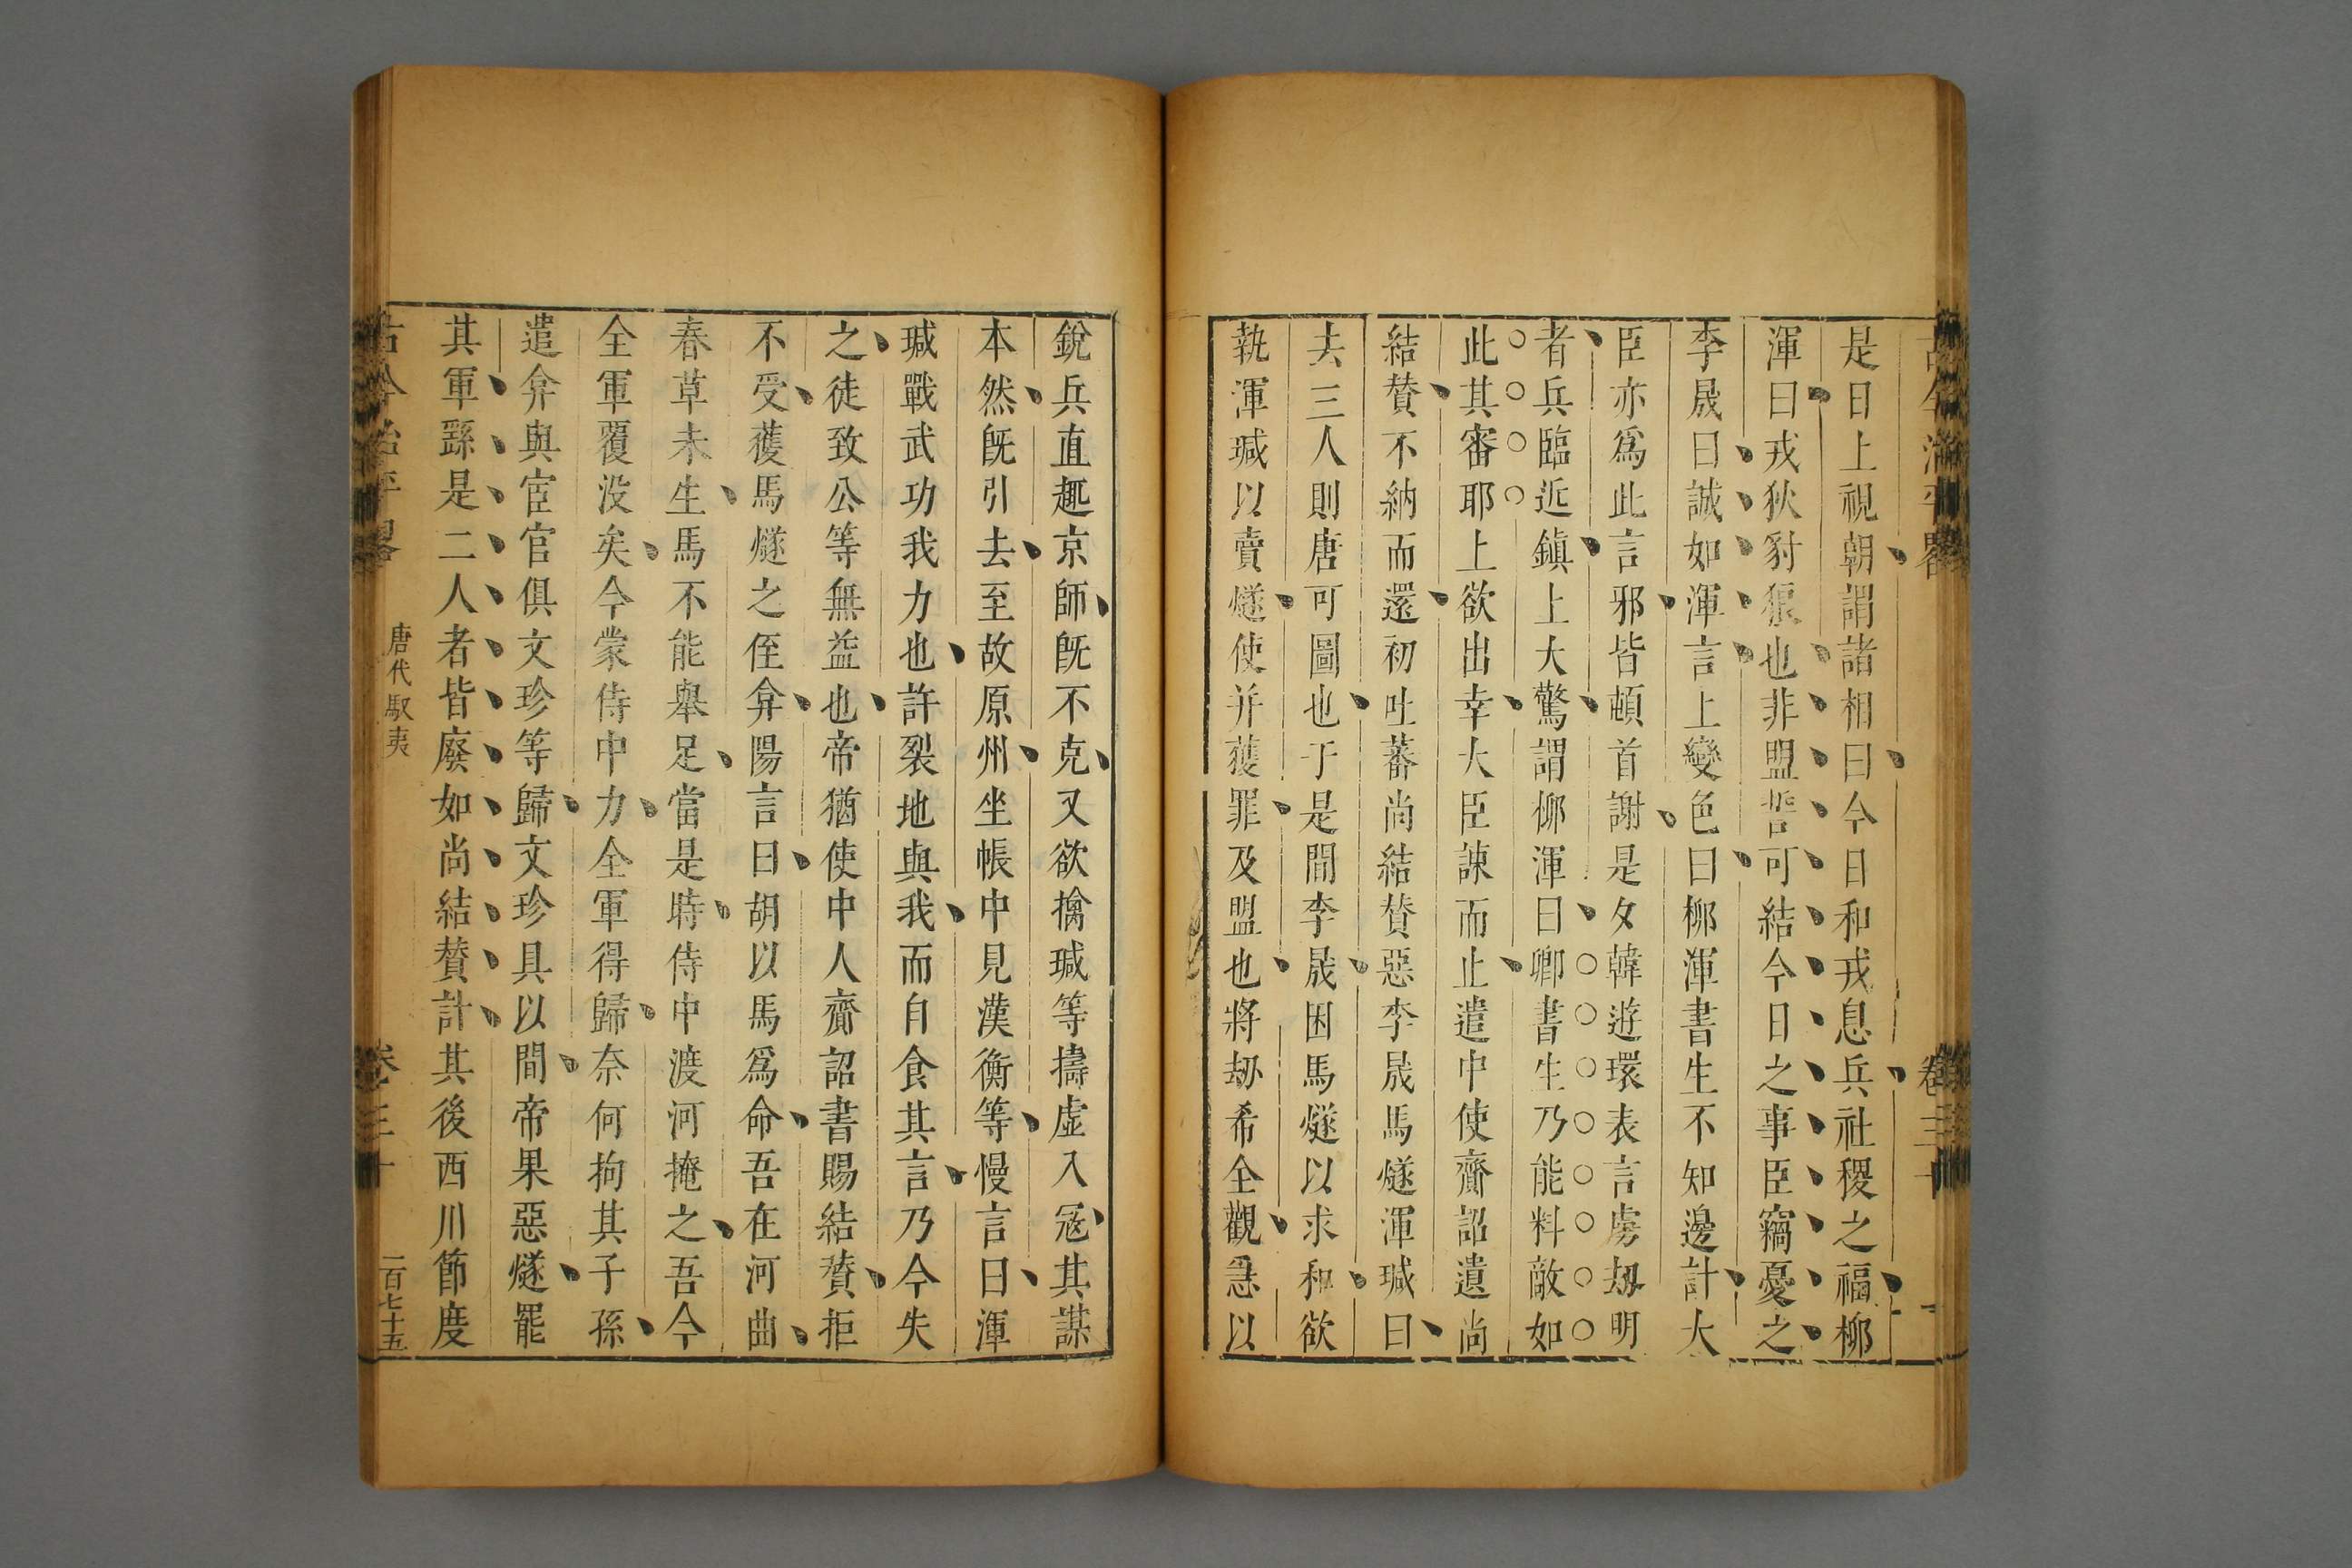 是日上視朝謂諸相曰今日和戎息兵社稷之福柳
渾曰戎狄豺狼也非盟誓可結今日之事臣竊憂之
李晟曰誠如渾言上變色曰柳渾書生不知邊計大
臣亦爲此言邪皆頓首謝是夕韓遊環表言虜刼明
者兵臨近鎭上大驚謂柳渾曰卿書生乃能料敵如
此其審耶上欲出幸大臣諫而止遣中使齎詔遺尚
結贊不納而還初吐蕃尚結贊惡李晟馬燧渾瑊曰
去三人則唐可圖也于是間李晟因馬燧以求和欲
執渾瑊以賣燧使并獲罪及盟也將刼希全觀急以
銳兵直趣京師旣不克又欲擒瑊等擣虛入寇其謀
本然旣引去至故原州坐帳中見漢衡等慢言曰渾
瑊戰武功我力也許裂地與我而自食其言乃今失
之徒致公等無益也帝猶使中人齎詔書賜結贊拒
不受獲馬燧之侄弇陽言曰胡以馬爲命吾在河曲
春草未生馬不能舉足當是時侍中渡河掩之吾今
全軍覆没矣今蒙侍中力全軍得歸奈何拘其子孫
遣弇與宦官俱文珍等歸文珍具以間帝果惡燧罷
其軍繇是二人者皆廢如尚結贊計其後西川節度
古今治平畧 唐代馭夷 卷三十 一百七十五